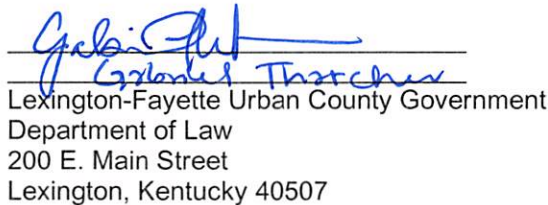 Thatcher
Lexington-Fayette Urban County Government
Department of Law
200 E. Main Street
Lexington, Kentucky 40507